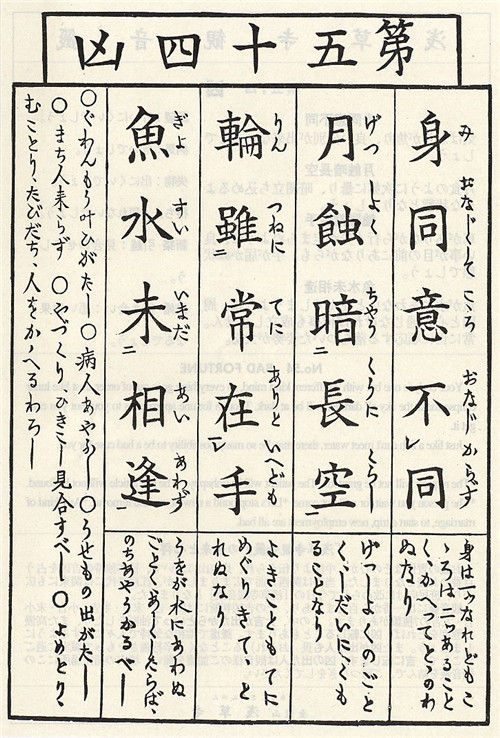 第五十四凶
身同意不同
み おなじくして こころ おなじ からず
身は一ツなれどもこ
ゝろは二ツあること
ぬなり
月蝕暗長空
げつ しよく ちやう くうに くらし
げつしよくのごと
く、しだいにくも
ることなり
輪雖常在手
りん つねに てに ありと いども
よきこともてに
めぐりきて、と
れぬなり
魚水未相逢
ぎよ すい いまだ あい あわず
うをが水にあわぬ
のちあやうかるべし
○ぐわんもう叶ひがたし ○病人あやふし ○うせもの出がたし
○まち人来らず ○やづくりひきこし見合すべし ○よめとり、
むことり、たびだち、人をかゝへるわろし